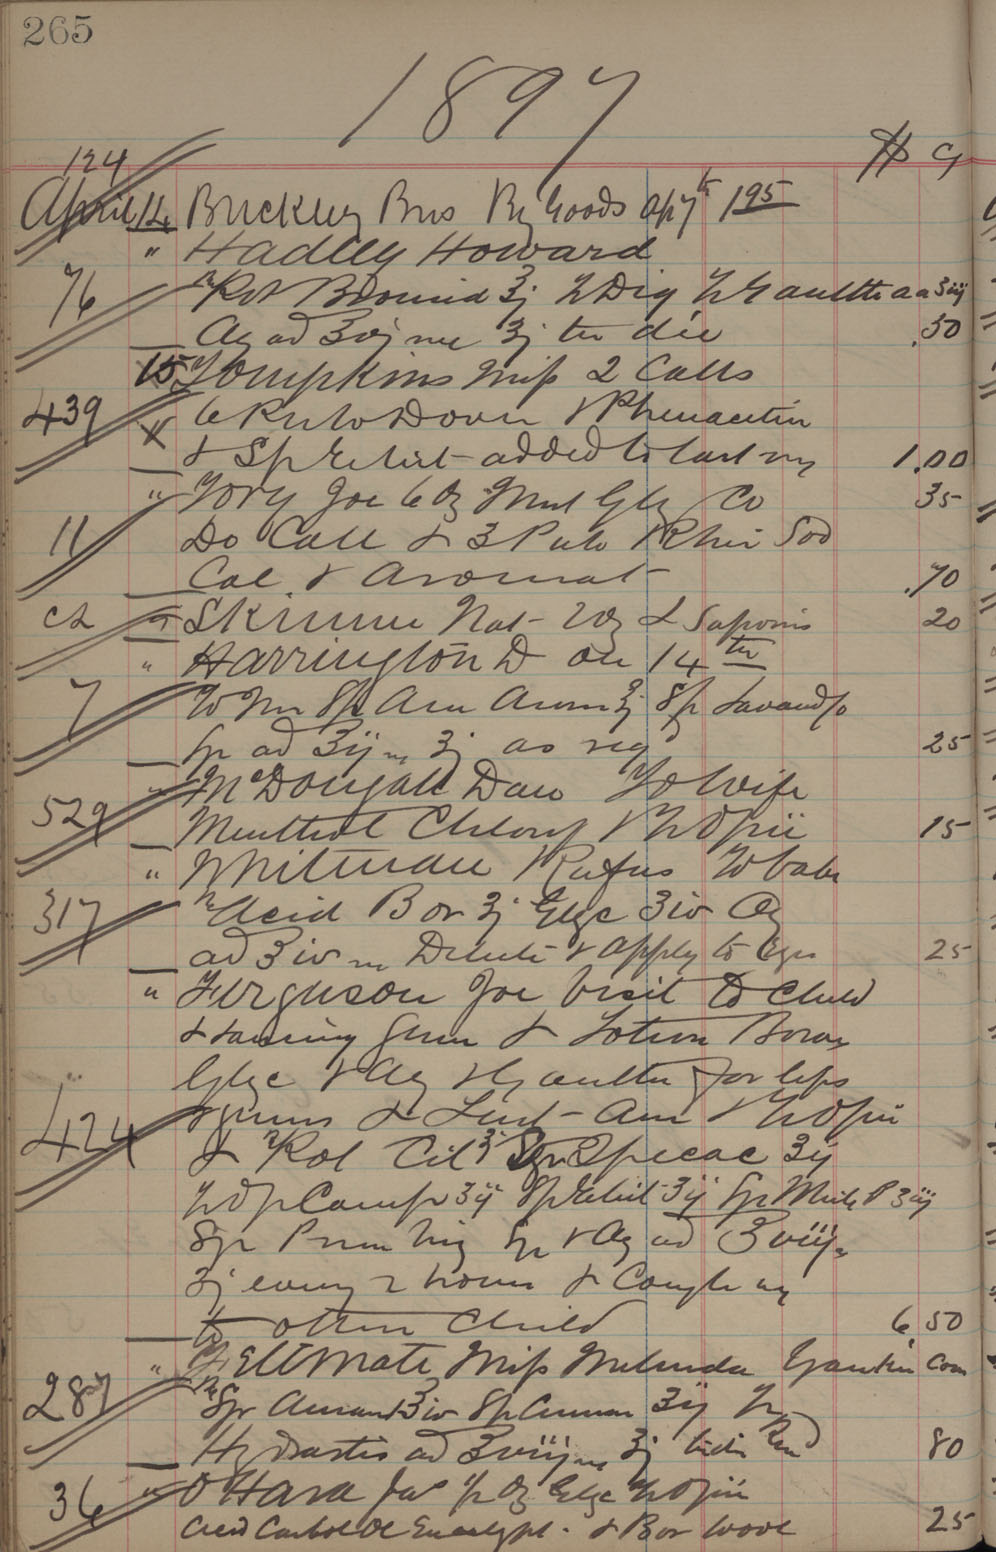 265
1897
124
April 14 Buckley Bros By Goods Ap 7th 1 95
" Hadley Howard
76 Pot Bromid ʒj Tr Dig Tr Gaulth aa ʒiij
Aq ad ʒvj m ʒj ter die .50
15 Tompkins Miss 2 Calls
439 6 Pulv Dover & Phenacetin
& Sp Etherist added to last 1.00
" Tory Joe 6 Oz Glyc Co 35
11 Do Call & 3 Pulv Rhei Sod
Cal & Aromat .70
" Skinner Nat 2 Oz & Saponis 20
" Harrington D on 14th
7 To Sp Am Arom ʒj Sp Lavand Co
ad ʒij m ʒj as req 25
" McDougall Dan To Wife
529 Menthol Chlorof & Tr Opii 15
" Whitman Rufus To babe
317 Acid Bor ʒj Glyc ʒiv Aq
ad ʒiv m Dilute & apply to Eyes 25
" Ferguson Joe Visit to Child
& Lancing Gum & Lotion Borax
Glyc & Aq & Gaulth for lips
424 & gums & & Tr Opii
& Pot Cit ʒj Ipecac ʒij
Tr Op Camph ʒij ʒij ʒiij
Syr Prun Virg & Aq ad ʒviij
ʒj every 2 hours & Cough
to other Child 6.50
" Feltmate Miss Melinda Com
287 Syr Aurant ʒiv Sp Ammon ʒij Tr
Hydrastis ad ʒviij m ʒj 80
36 " O'Hara Jas ½ Oz Glyc Tr Opii
Acid Carbol Ol Eucalypt. & Bor Wool 25